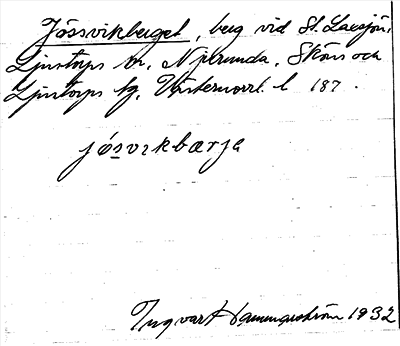 Jössvikberget, berg vid St. Laxsjön,
Ljustorps sn, Njurunda, Sköns och
Ljustorps tg, Västernorrl. l. 187.
jösvikbærja
Ingvar Hammarström 1932